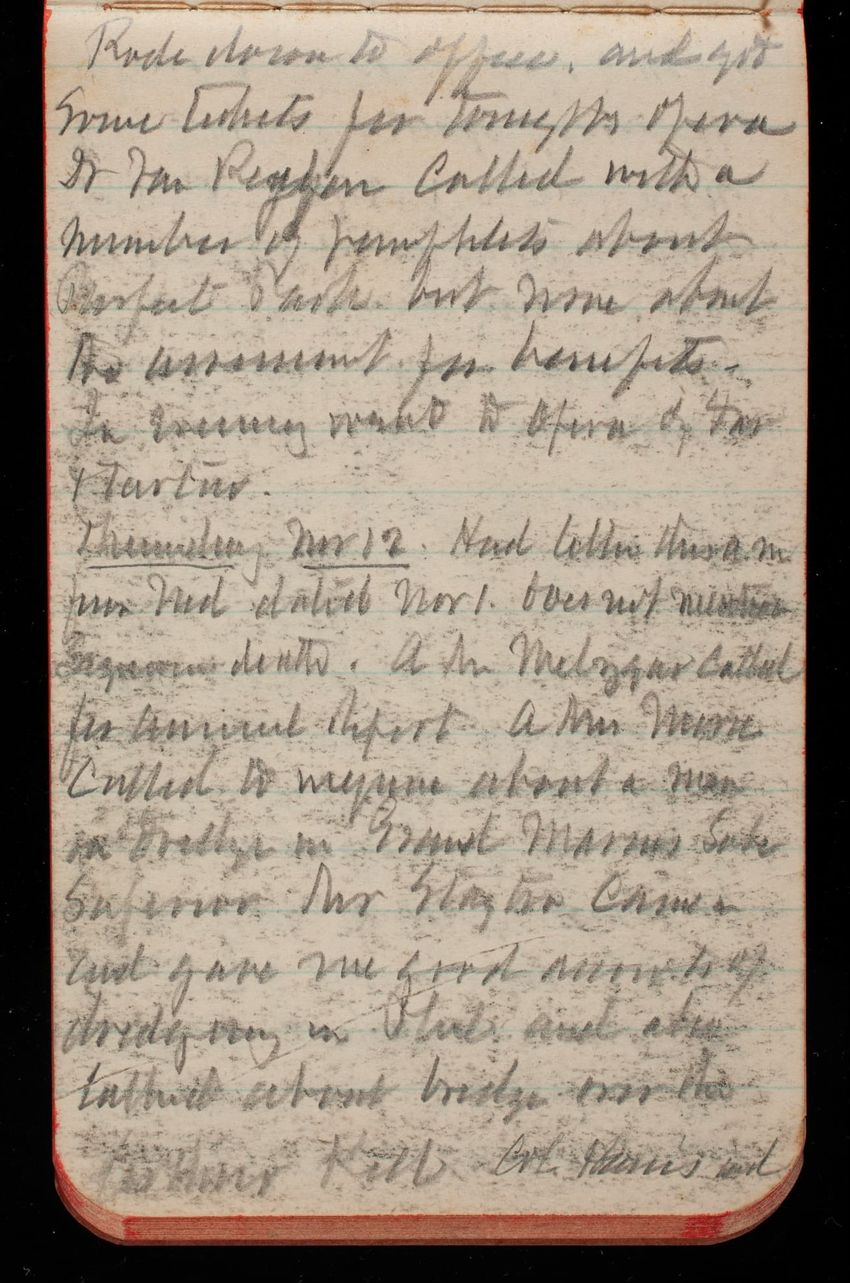 Rode down to office, and got
Some tickets for tonights opera
Dr Van Reypen Called with a
number of pamphlets about
Perfect Park but none about
the assessment for benefits.
In Evening went to Opera of
Thursday Nov 12. Had letter this a.m
from Ned dated Nov 1. Does not mention
death. A Mr Called
for annual Report A Mr
Called to inquire about a man
on dredge in Grand Marais Lake
Superior Mr Came in
and gave me good accounts of
dredging in and also
talked about bridge over the
Kill Col. Harris and